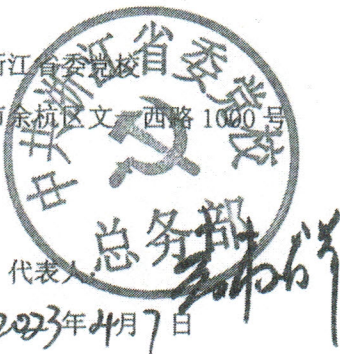 浙江省委党校
市余杭区文一西路 1000 号
中共浙江省委党校
总务部
代表人:
2023年4月7日